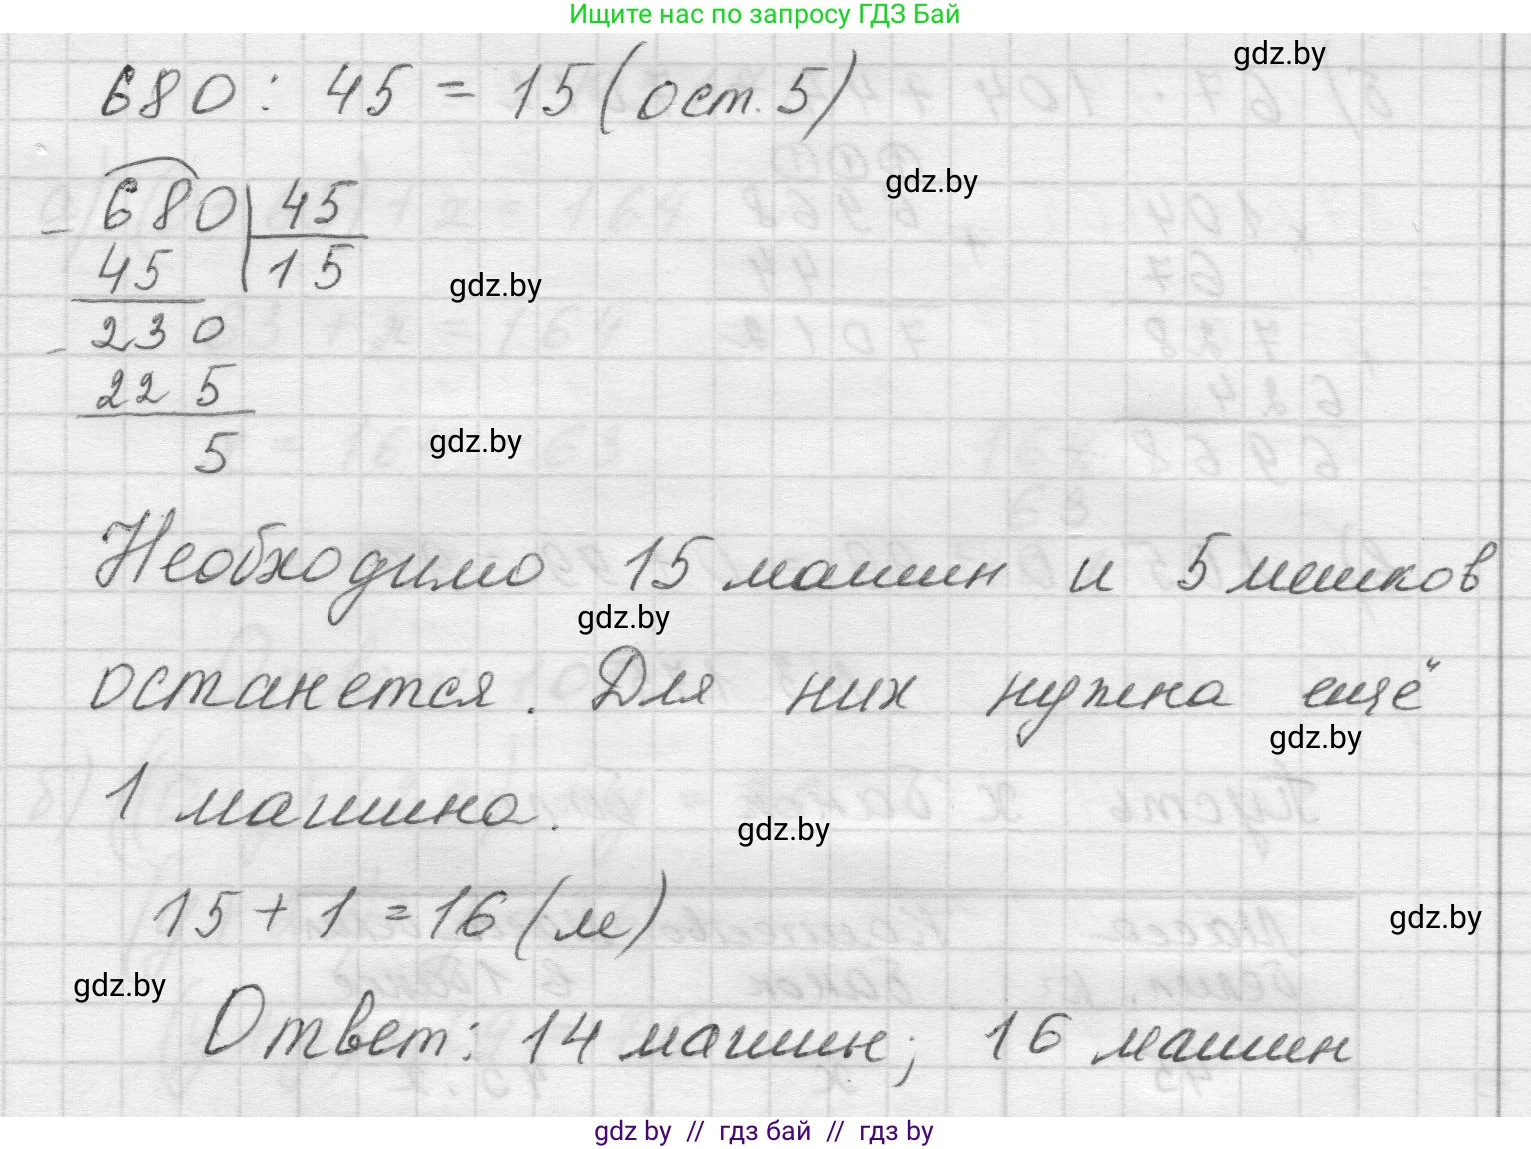 Ищите нас по запросу ГДЗ Бай
gdz.by
680 : 45 = 15 (ост. 5)
gdz.by
- 680 | 45
45 | 15
gdz.by
- 230
225
5
gdz.by
Необходимо 15 машин и 5 мешков
gdz.by
останется. Для них нужна ещё
gdz.by
1 машина.
gdz.by
15 + 1 = 16 (м)
gdz.by
gdz.by
Ответ: 14 машин; 16 машин
gdz by // гдз бай // гдз by